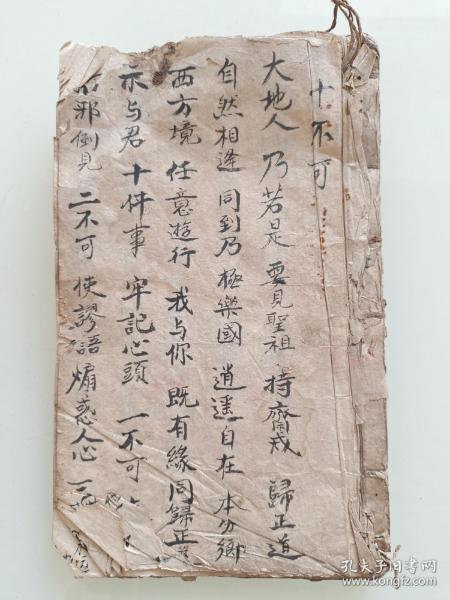 十不可
大地人 乃若是 要見聖祖 持齋戒 歸正道
自然相逢 同到乃極樂國 逍遥自在 本分鄉
西方境 任意遊行 我与你 既有緣同歸正
示与君 十件事 牢記心頭 一不可
邪倒見 二不可 使謬語 煽惑人心
孔夫子旧书网
kongfz.com